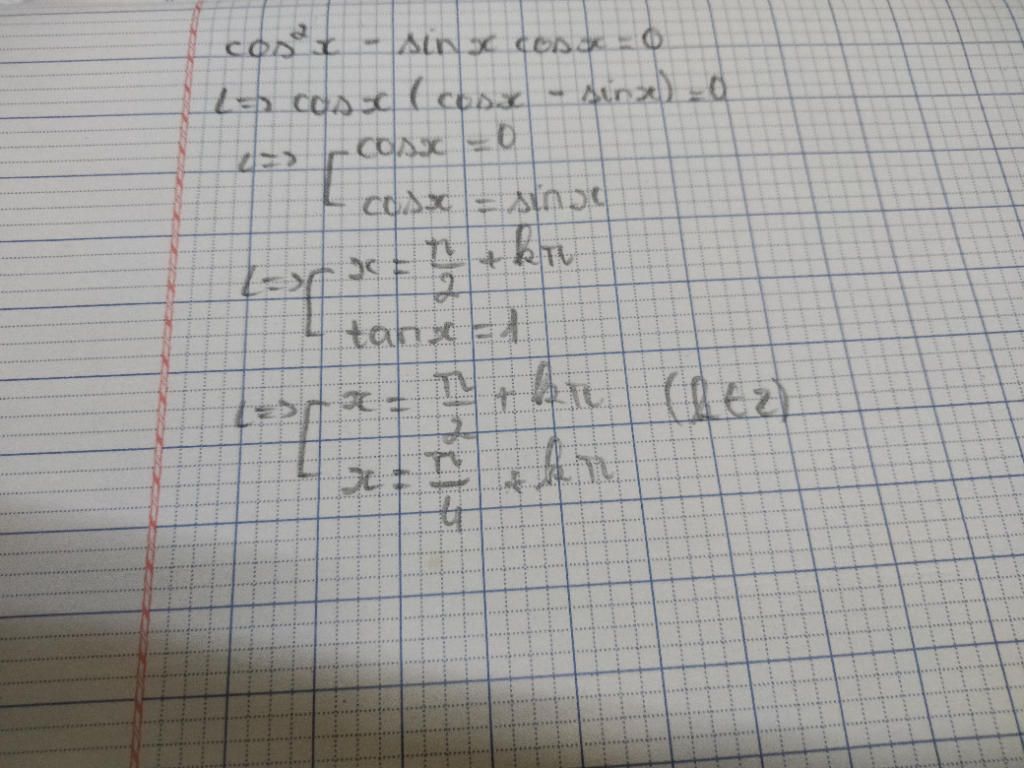 cos²x - sinx cosx = 0
<=> cosx (cosx - sinx) = 0
<=> [ cosx = 0
cosx = sinx
<=> [ x = π/2 + kπ
tanx = 1
<=> [ x = π/2 + kπ (k ∈ Z)
x = π/4 + kπ